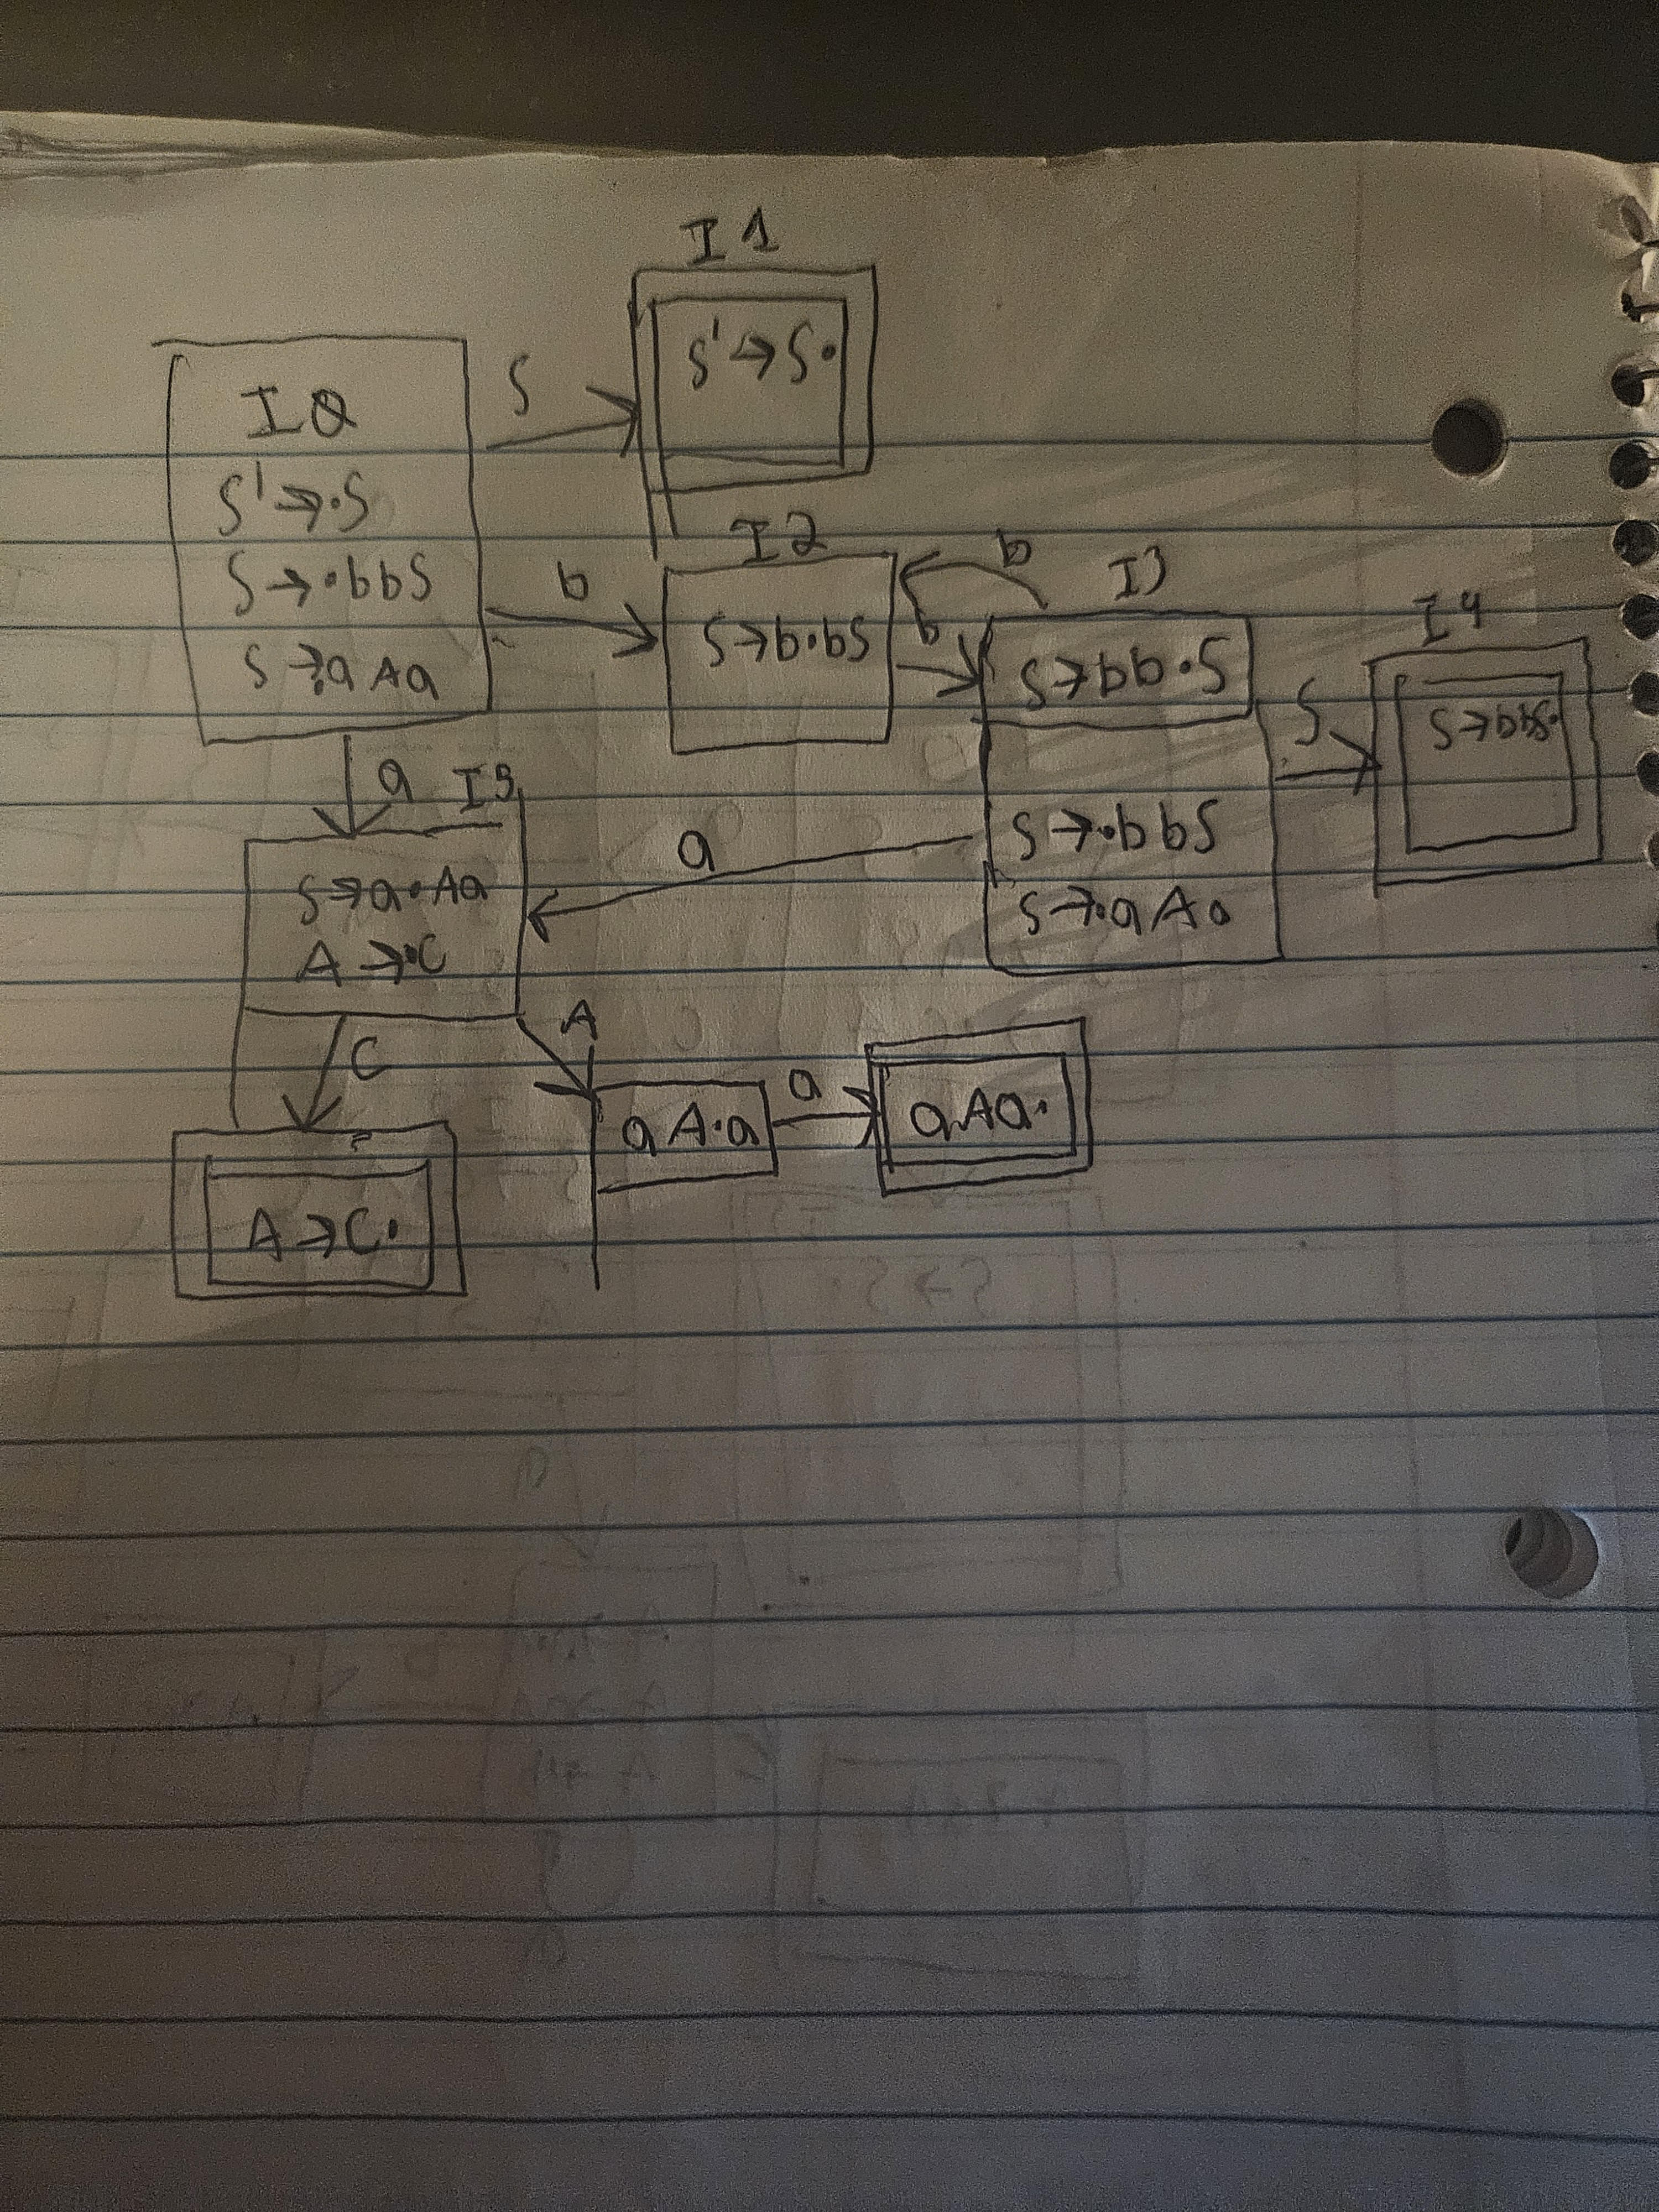 I1
S' → S.
I0
S' → .S
S → .bbS
S → .aAa
S
b
I2
S → b.bS
b
b
I3
S → bb.S
S → .bbS
S → .aAa
S
I4
S → bbS.
a
I5
S → a.Aa
A → .C
a
C
A → C.
A
aA.a
a
aAa.